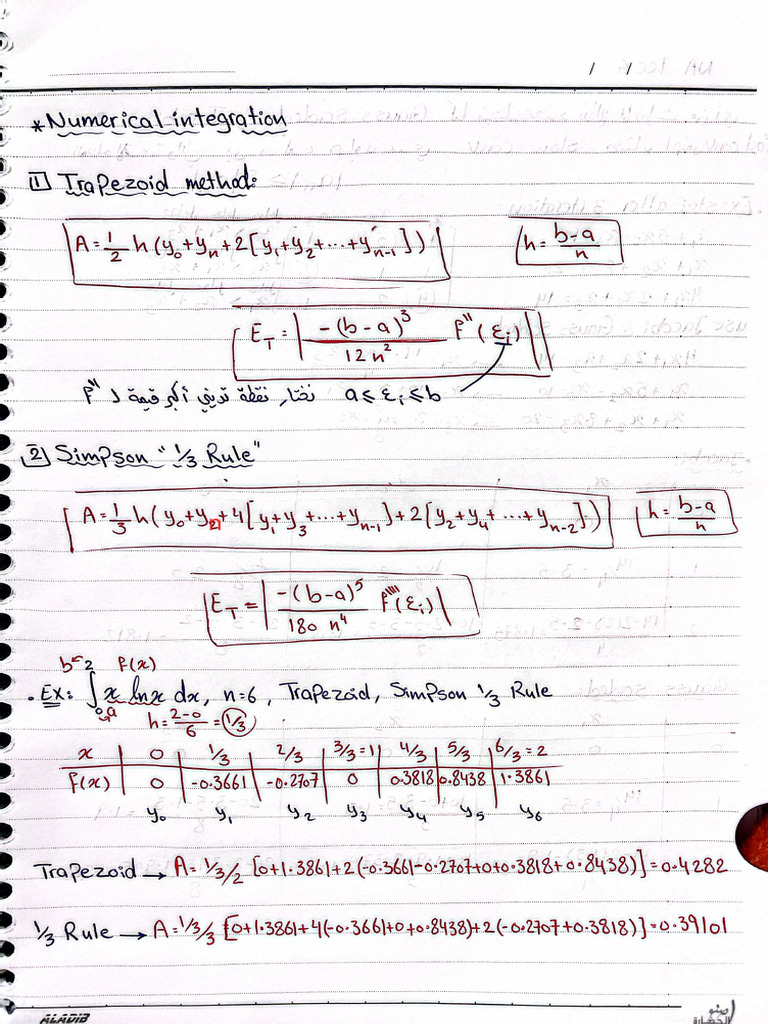 * Numerical integration
1 Trapezoid method:
A = 1/2 h (y₀ + yₙ + 2[y₁ + y₂ + ... + yₙ₋₁]) h = b-a/n
E_T = | -(b-a)³/12 n² f''(ε_i) |
a ≤ ε_i ≤ b نختار نقطة تديني أكبر قيمة لـ f''
2 Simpson "1/3 Rule"
A = 1/3 h (y₀ + yₙ + 4[y₁ + y₃ + ... + yₙ₋₁] + 2[y₂ + y₄ + ... + yₙ₋₂]) h = b-a/n
E_T = | -(b-a)⁵/180 n⁴ f''''(ε_i) |
b ← 2 f(x)
. EX: ∫ x ln x dx, n=6, Trapezoid, Simpson 1/3 Rule
0 → a h = 2-0/6 = 1/3
x 0 1/3 2/3 3/3=1 4/3 5/3 6/3=2
f(x) 0 -0.3661 -0.2707 0 0.3818 0.8438 1.3861
y₀ y₁ y₂ y₃ y₄ y₅ y₆
Trapezoid → A = 1/3/2 [0+1.3861+2(-0.3661-0.2707+0+0.3818+0.8438)] = 0.4282
1/3 Rule → A = 1/3/3 [0+1.3861+4(-0.3661+0+0.8438)+2(-0.2707+0.3818)] = 0.39101
ALADIB